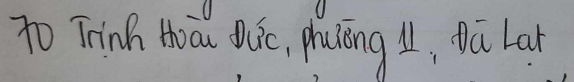 70 Trịnh Hoài Đức, phường 11, Đà Lạt